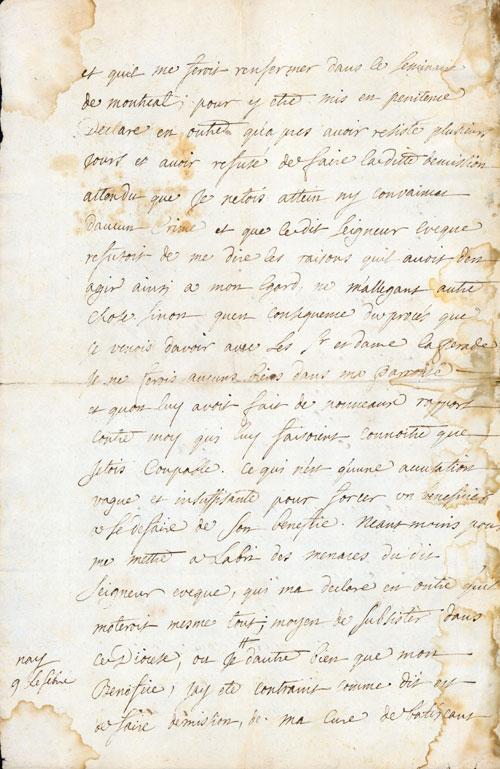 et quil me feroit renfermer dans le seminaire
de montreal; pour y etre mis en penitence
declare en outre qua pres avoir resisté plusieurs
jours et avoir refusé de faire laditte démission
attendu que je netois attein ny convaincu
daucun Crime et que ledit seigneur eveque
refusoit de me dire les raisons quil avoit den
agir ainsi a mon Egard, ne mallegant autre
chose sinon quen consequence du procés que
je venois davoir avec les Sr et dame la perade
je ne ferois aucuns biens dans ma paroisse
et quon luy avoit fait de nouveaux rapport
contre moy qui luy faisoient connoitre que
jetois Coupable. Ce qui n'est qu'une accusation
vague et insuffisante pour forcer un beneficier
a se defaire de son benefice. Neantmoins pour
me mettre a labri des menaces du dit
seigneur eveque, qui ma declaré en outre quil
moteroit mesme tout; moyen de subsister dans
ce Diocese, ou je dautre bien que mon
Benefice, jay eté contraint comme dit est
de faire demission, de ma Cure de batiscant
nay
9 Lefebre